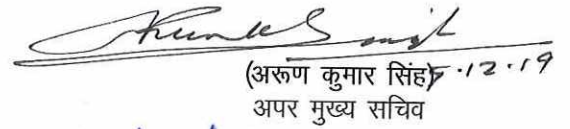 (अरूण कुमार सिंह) .12.19
अपर मुख्य सचिव